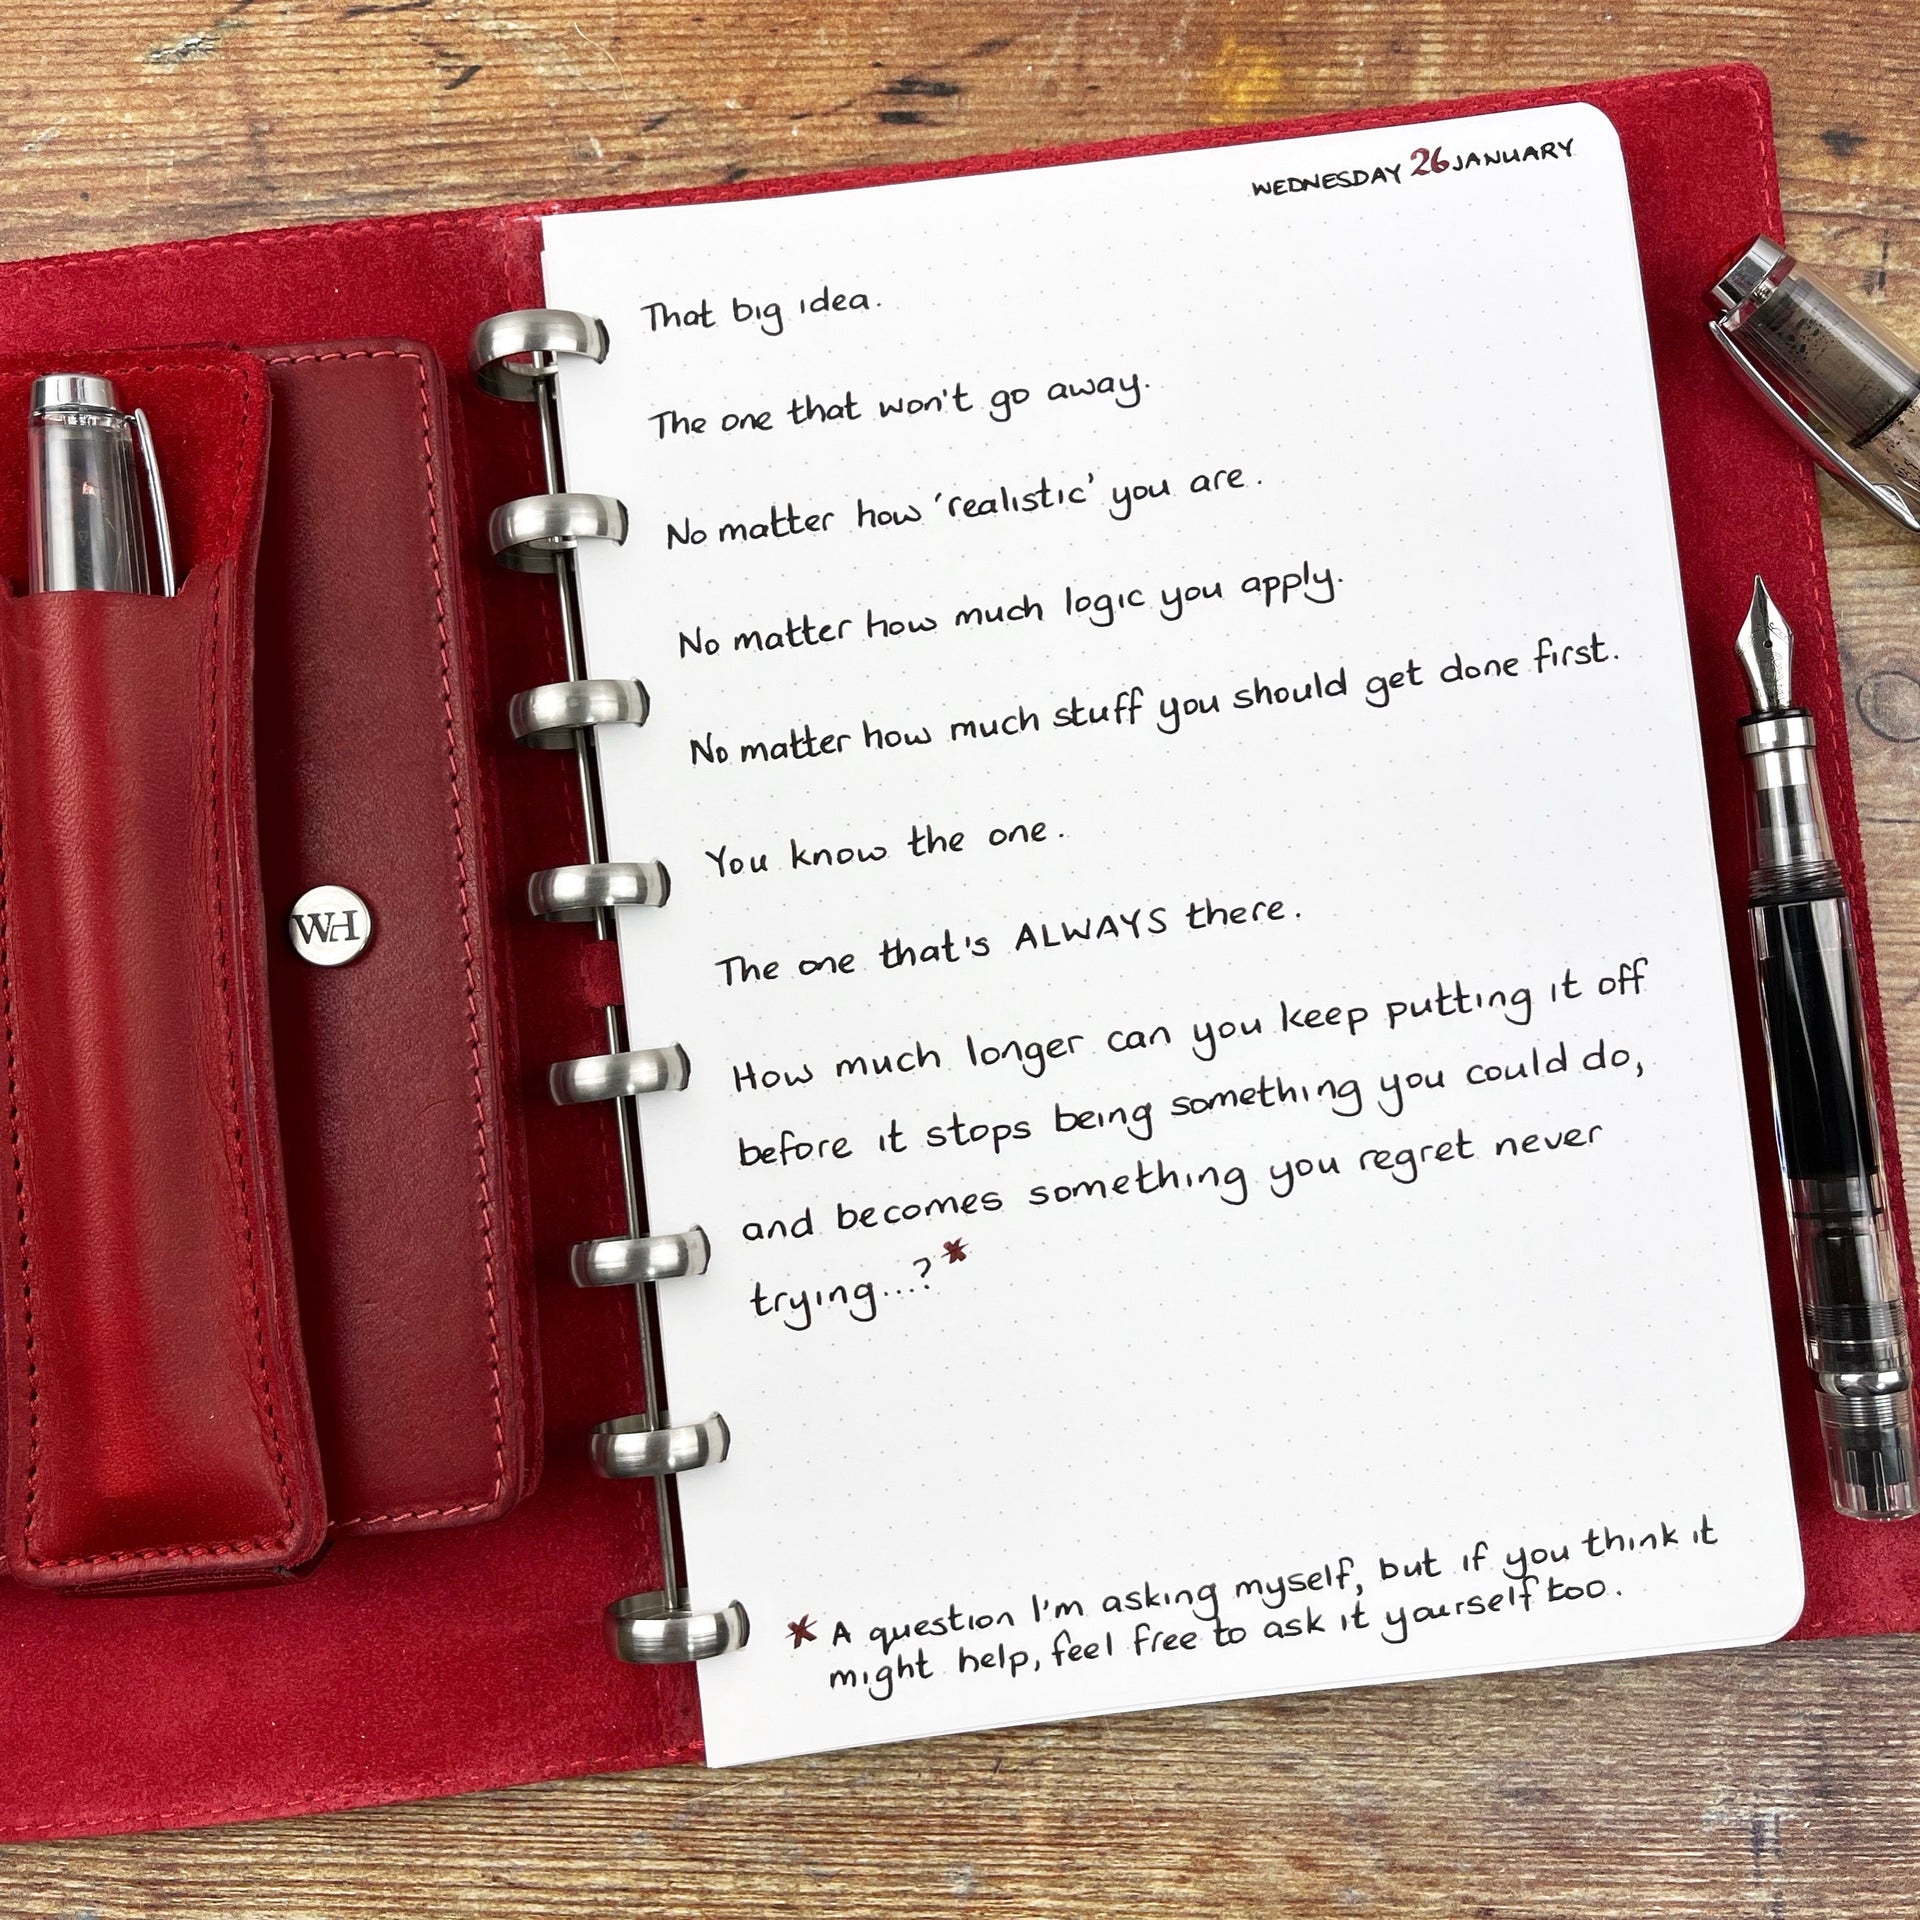 WEDNESDAY 26 JANUARY
That big idea.
The one that won't go away.
No matter how 'realistic' you are.
No matter how much logic you apply.
No matter how much stuff you should get done first.
You know the one.
The one that's ALWAYS there.
How much longer can you keep putting it off
before it stops being something you could do,
and becomes something you regret never
trying...?*
* A question I'm asking myself, but if you think it
might help, feel free to ask it yourself too.
WH